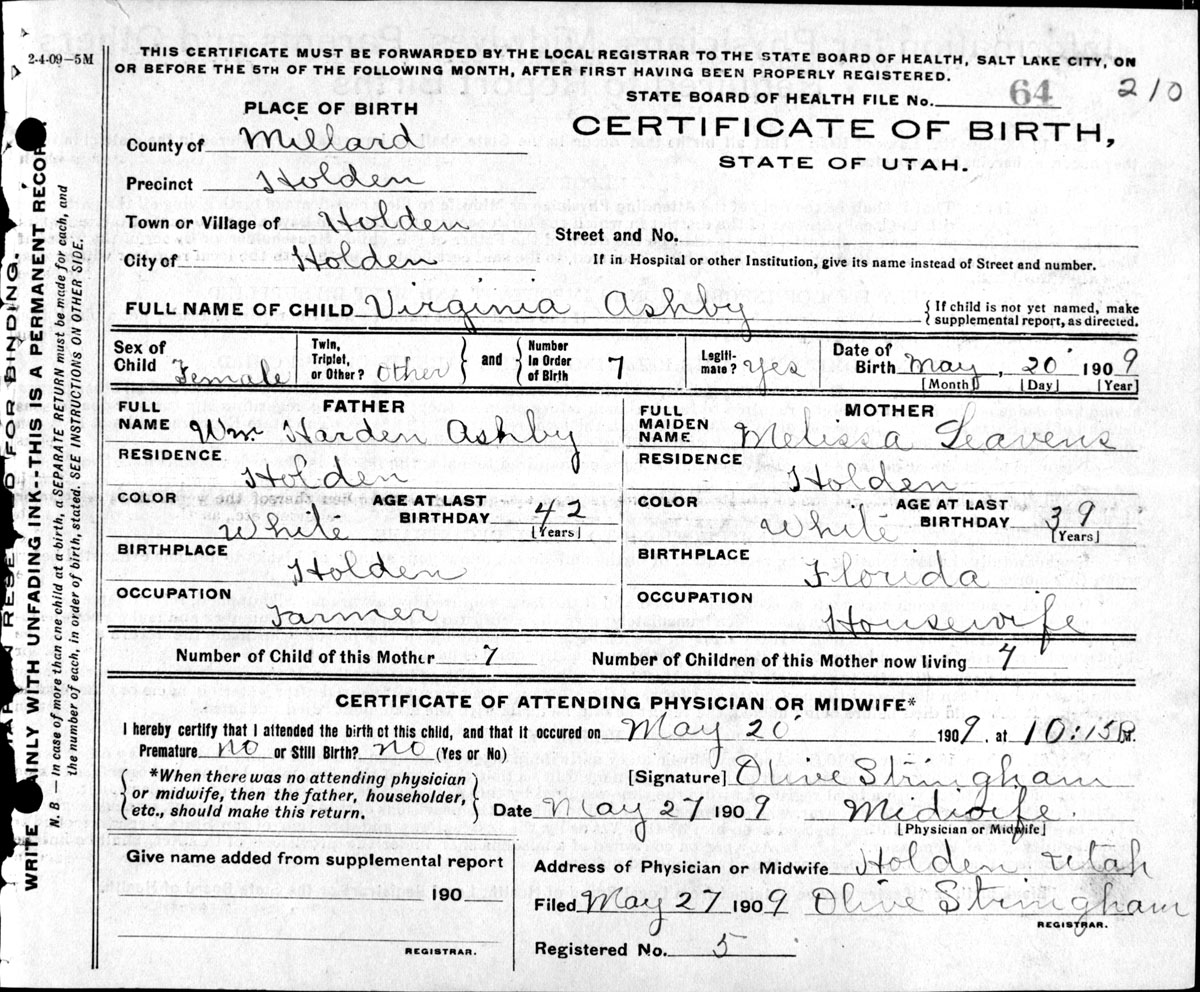 2-4-09-5M
THIS CERTIFICATE MUST BE FORWARDED BY THE LOCAL REGISTRAR TO THE STATE BOARD OF HEALTH, SALT LAKE CITY, ON
OR BEFORE THE 5TH OF THE FOLLOWING MONTH, AFTER FIRST HAVING BEEN PROPERLY REGISTERED.
STATE BOARD OF HEALTH FILE No. 64 210
PLACE OF BIRTH
CERTIFICATE OF BIRTH,
STATE OF UTAH.
County of Millard
Precinct Holden
Town or Village of Holden
Street and No.
City of Holden
If in Hospital or other Institution, give its name instead of Street and number.
FULL NAME OF CHILD Virginia Ashby
{ If child is not yet named, make
supplemental report, as directed.
Sex of Child Female
Twin, Triplet, or Other? Other } and { Number in Order of Birth 7
Legiti-mate? Yes
Date of Birth May, 20 1909
[Month] [Day] [Year]
FATHER
FULL NAME Wm. Harden Ashby
RESIDENCE Holden
COLOR White
AGE AT LAST BIRTHDAY 42 [Years]
BIRTHPLACE Holden
OCCUPATION Farmer
MOTHER
FULL MAIDEN NAME Melissa Seavens
RESIDENCE Holden
COLOR White
AGE AT LAST BIRTHDAY 39 [Years]
BIRTHPLACE Florida
OCCUPATION Housewife
Number of Child of this Mother 7
Number of Children of this Mother now living 4
CERTIFICATE OF ATTENDING PHYSICIAN OR MIDWIFE*
I hereby certify that I attended the birth of this child, and that it occured on May 20 1909, at 10:15 P.M.
Premature no or Still Birth? no (Yes or No)
{ *When there was no attending physician
or midwife, then the father, householder,
etc., should make this return. }
[Signature] Olive Stringham
Date May 27 1909 Midwife
[Physician or Midwife]
Give name added from supplemental report
190
REGISTRAR.
Address of Physician or Midwife Holden Utah
Filed May 27 1909 Olive Stringham
REGISTRAR.
Registered No. 5
MARGIN RESERVED FOR BINDING.
WRITE PLAINLY WITH UNFADING INK--THIS IS A PERMANENT RECORD.
N. B. — In case of more than one child at a birth, a SEPARATE RETURN must be made for each, and
the number of each, in order of birth, stated. SEE INSTRUCTIONS ON OTHER SIDE.